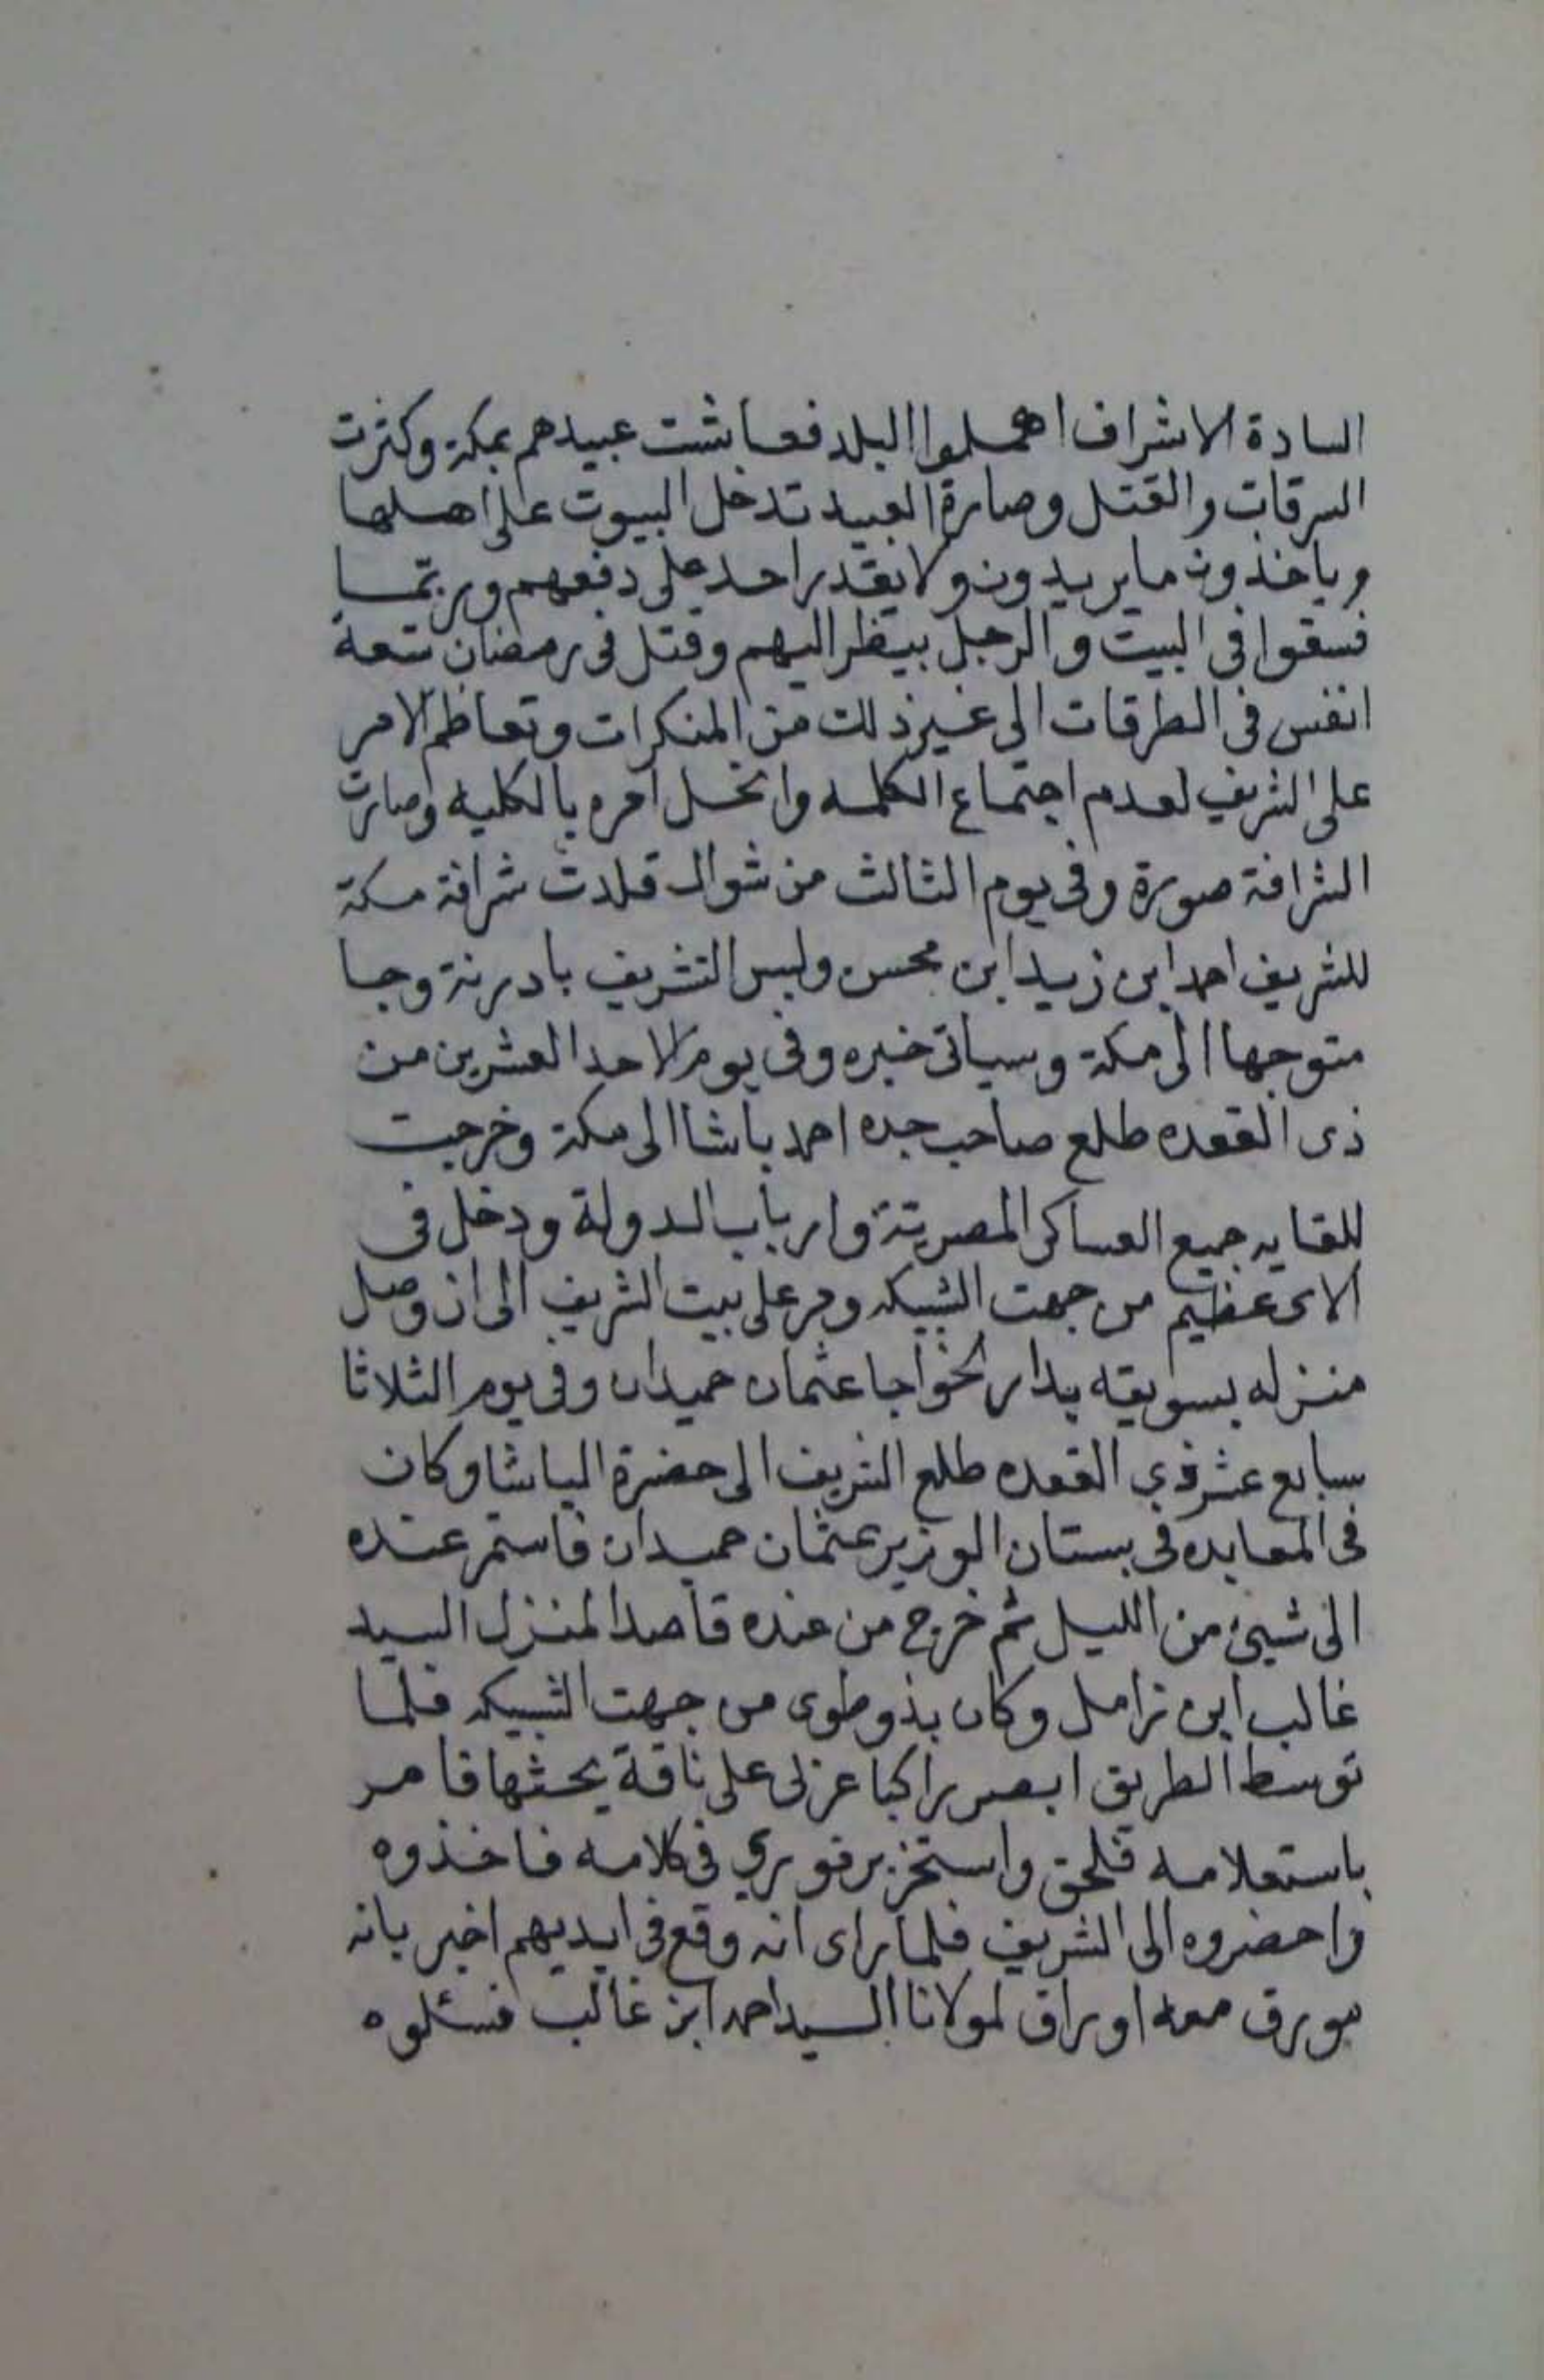 السادة الاشراف اهملوا البلد فعاشت عبيدهم بمكة وكثرت
السرقات والقتل وصارة العبيد تدخل البيوت على اهلها
وياخذون ما يريدون ولا يقدر احد على دفعهم وربما
فسقوا فى البيت والرجل ينظر اليهم وقتل فى رمضان تسعة
انفس فى الطرقات الى غير ذلك من المنكرات وتعاظم الامر
على الشريف لعدم اجتماع الكلمه وانحل امره بالكليه وصارت
الشرافة صورة وفى يوم الثالث من شوال قلدت شرافة مكة
للشريف احمد ابن زيد ابن محسن ولبس التشريف بادرنة وجا
متوجها الى مكة وسياتى خبره وفى يوم الاحد العشرين من
ذى القعده طلع صاحب جده احمد باشا الى مكة وخرجت
للقايه جميع العساكر المصرية وارباب الدولة ودخل فى
الاى عظيم من جهت الشبيكه ومر على بيت الشريف الى ان وصل
منزله بسويقه بدار الخواجا عثمان حميدان وفى يوم الثلاثا
سابع عشر ذي القعده طلع الشريف الى حضرة الباشا وكان
فى المعابده فى بستان الوزير عثمان حميدان فاستمر عنده
الى شيئ من الليل ثم خرج من عنده قاصدا لمنزل السيد
غالب ابن زامل وكان بذو طوى من جهت الشبيكه فلما
توسط الطريق ابصر راكبا عزلى على ناقة يحثها فامر
باستعلامه فلحق واستخبر فوري فى كلامه فاخذوه
واحضروه الى الشريف فلما راى انه وقع فى ايديهم اخبر بانه
مورق معه اوراق لمولانا السيد احمد ابن غالب فسئلوه